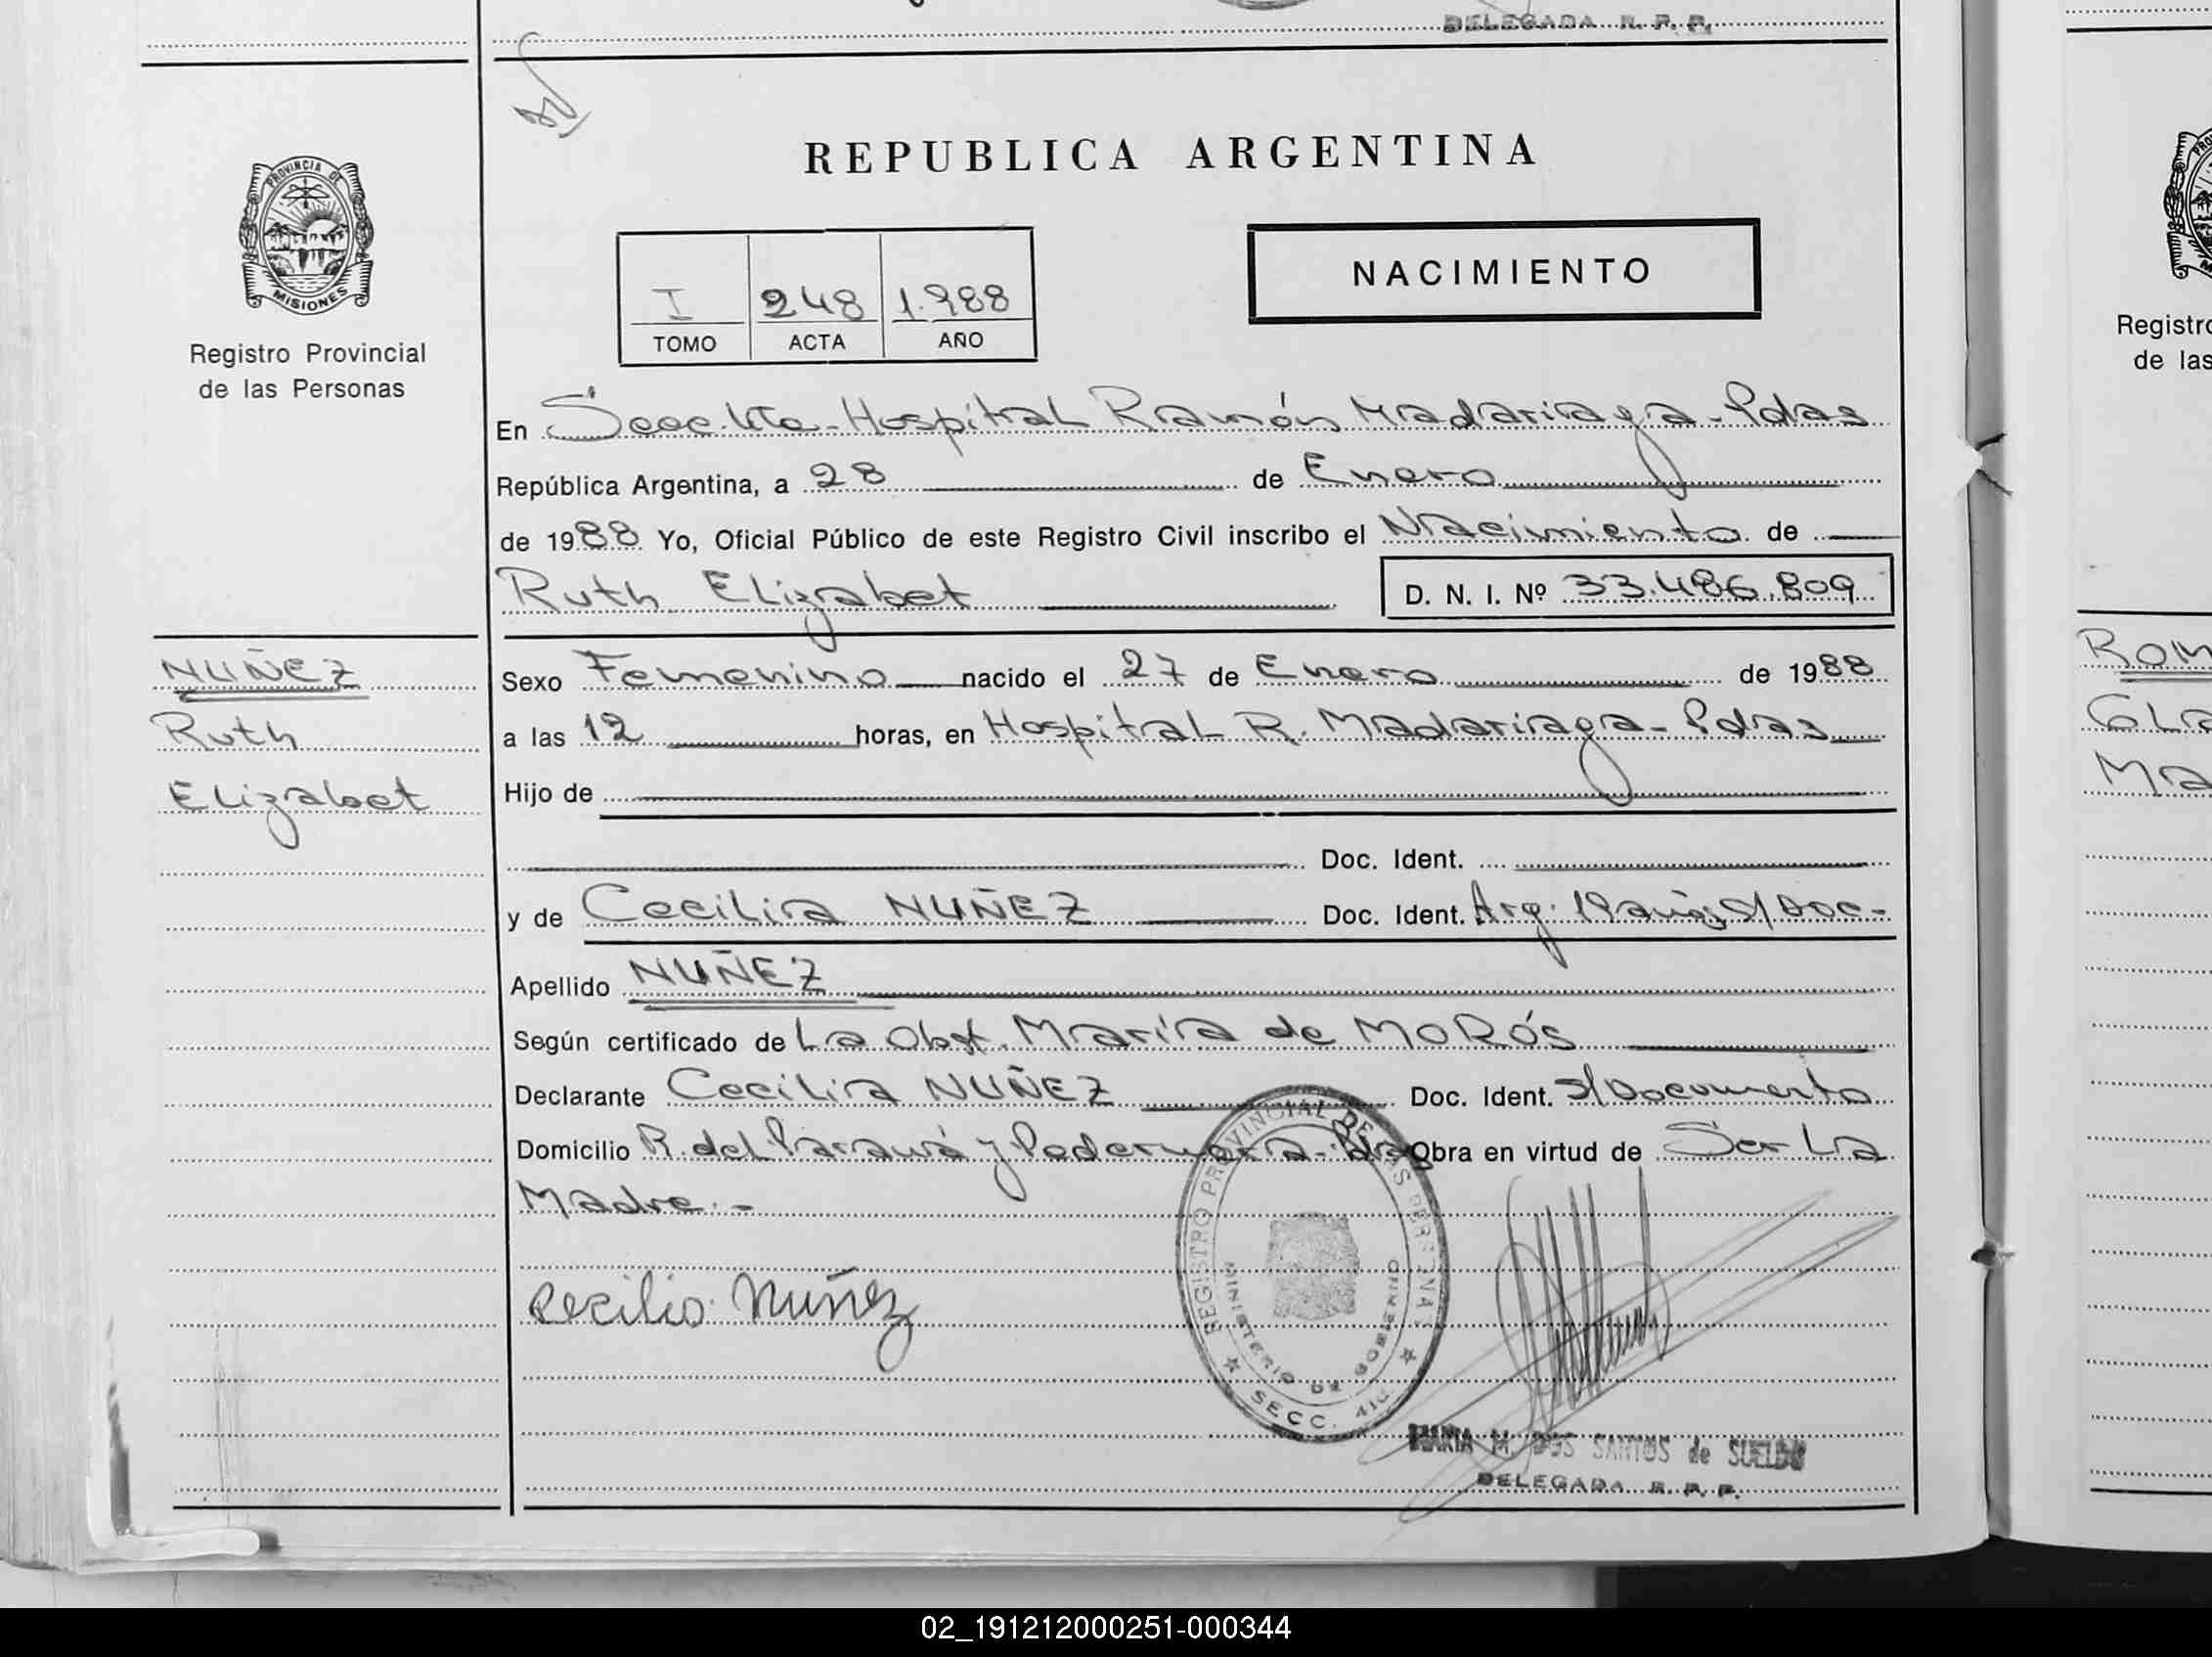 DELEGADA R. P. P.
REPUBLICA ARGENTINA
PROVINCIA DE
MISIONES
Registro Provincial
de las Personas
I 248 1.988
TOMO ACTA AÑO
NACIMIENTO
En Secc. 4ta - Hospital Ramón Madariaga - Pdas
República Argentina, a 28 de Enero
de 1988 Yo, Oficial Público de este Registro Civil inscribo el Nacimiento de
Ruth Elizabet D. N. I. Nº 33.486.809
NUÑEZ
Ruth
Elizabet
Sexo Femenino nacido el 27 de Enero de 1988
a las 12 horas, en Hospital R. Madariaga - Pdas
Hijo de
Doc. Ident.
y de Cecilia NUÑEZ Doc. Ident. Arg. 19 años s/Doc-
Apellido NUÑEZ
Según certificado de La Obst. María de MORÓS
Declarante Cecilia NUÑEZ Doc. Ident. s/Documento
Domicilio R. del Paraná y Pedernera - Pdas Obra en virtud de Ser La
Madre.-
Cecilia Nuñez
REGISTRO PROVINCIAL DE LAS PERSONAS
MINISTERIO DE GOBIERNO
SECC. 4ta.
MARIA M. DOS SANTOS de SUELDO
DELEGADA R. P. P.
Registro
de las
Rom
Ma
02_191212000251-000344